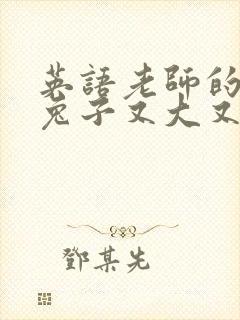 英語老師的
兔子又大又
鄧某先